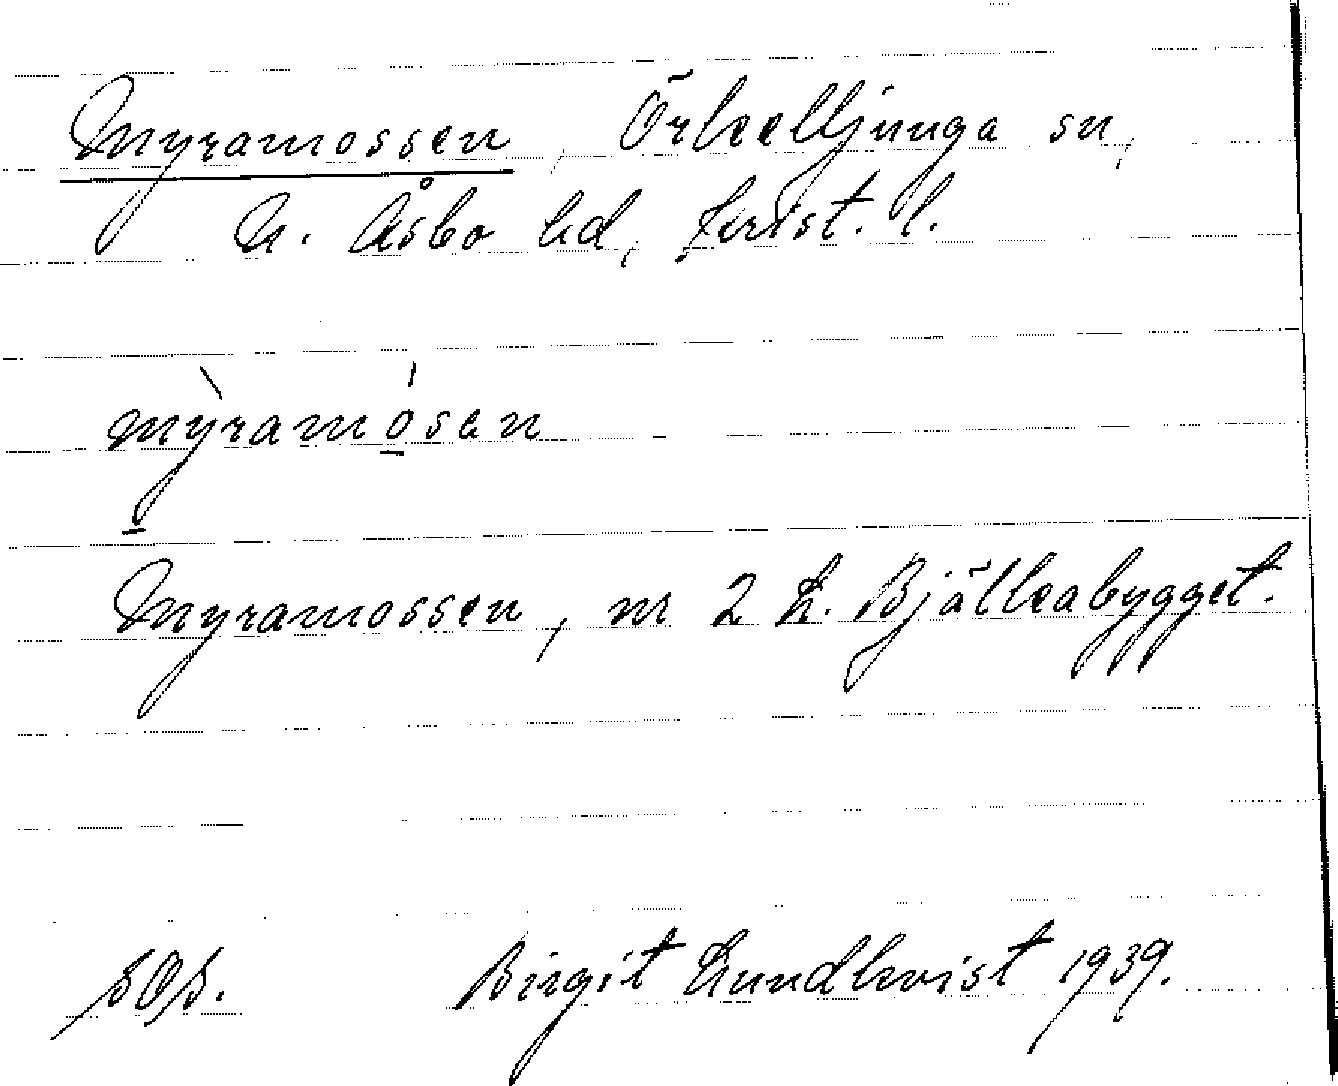 Myramossen, Örkelljunga sn,
N. Åsbo hd, Krist. l.
mỳramósen
Myramossen, nr 2 L. Bjälkabygget.
Birgit Lundkvist 1939.